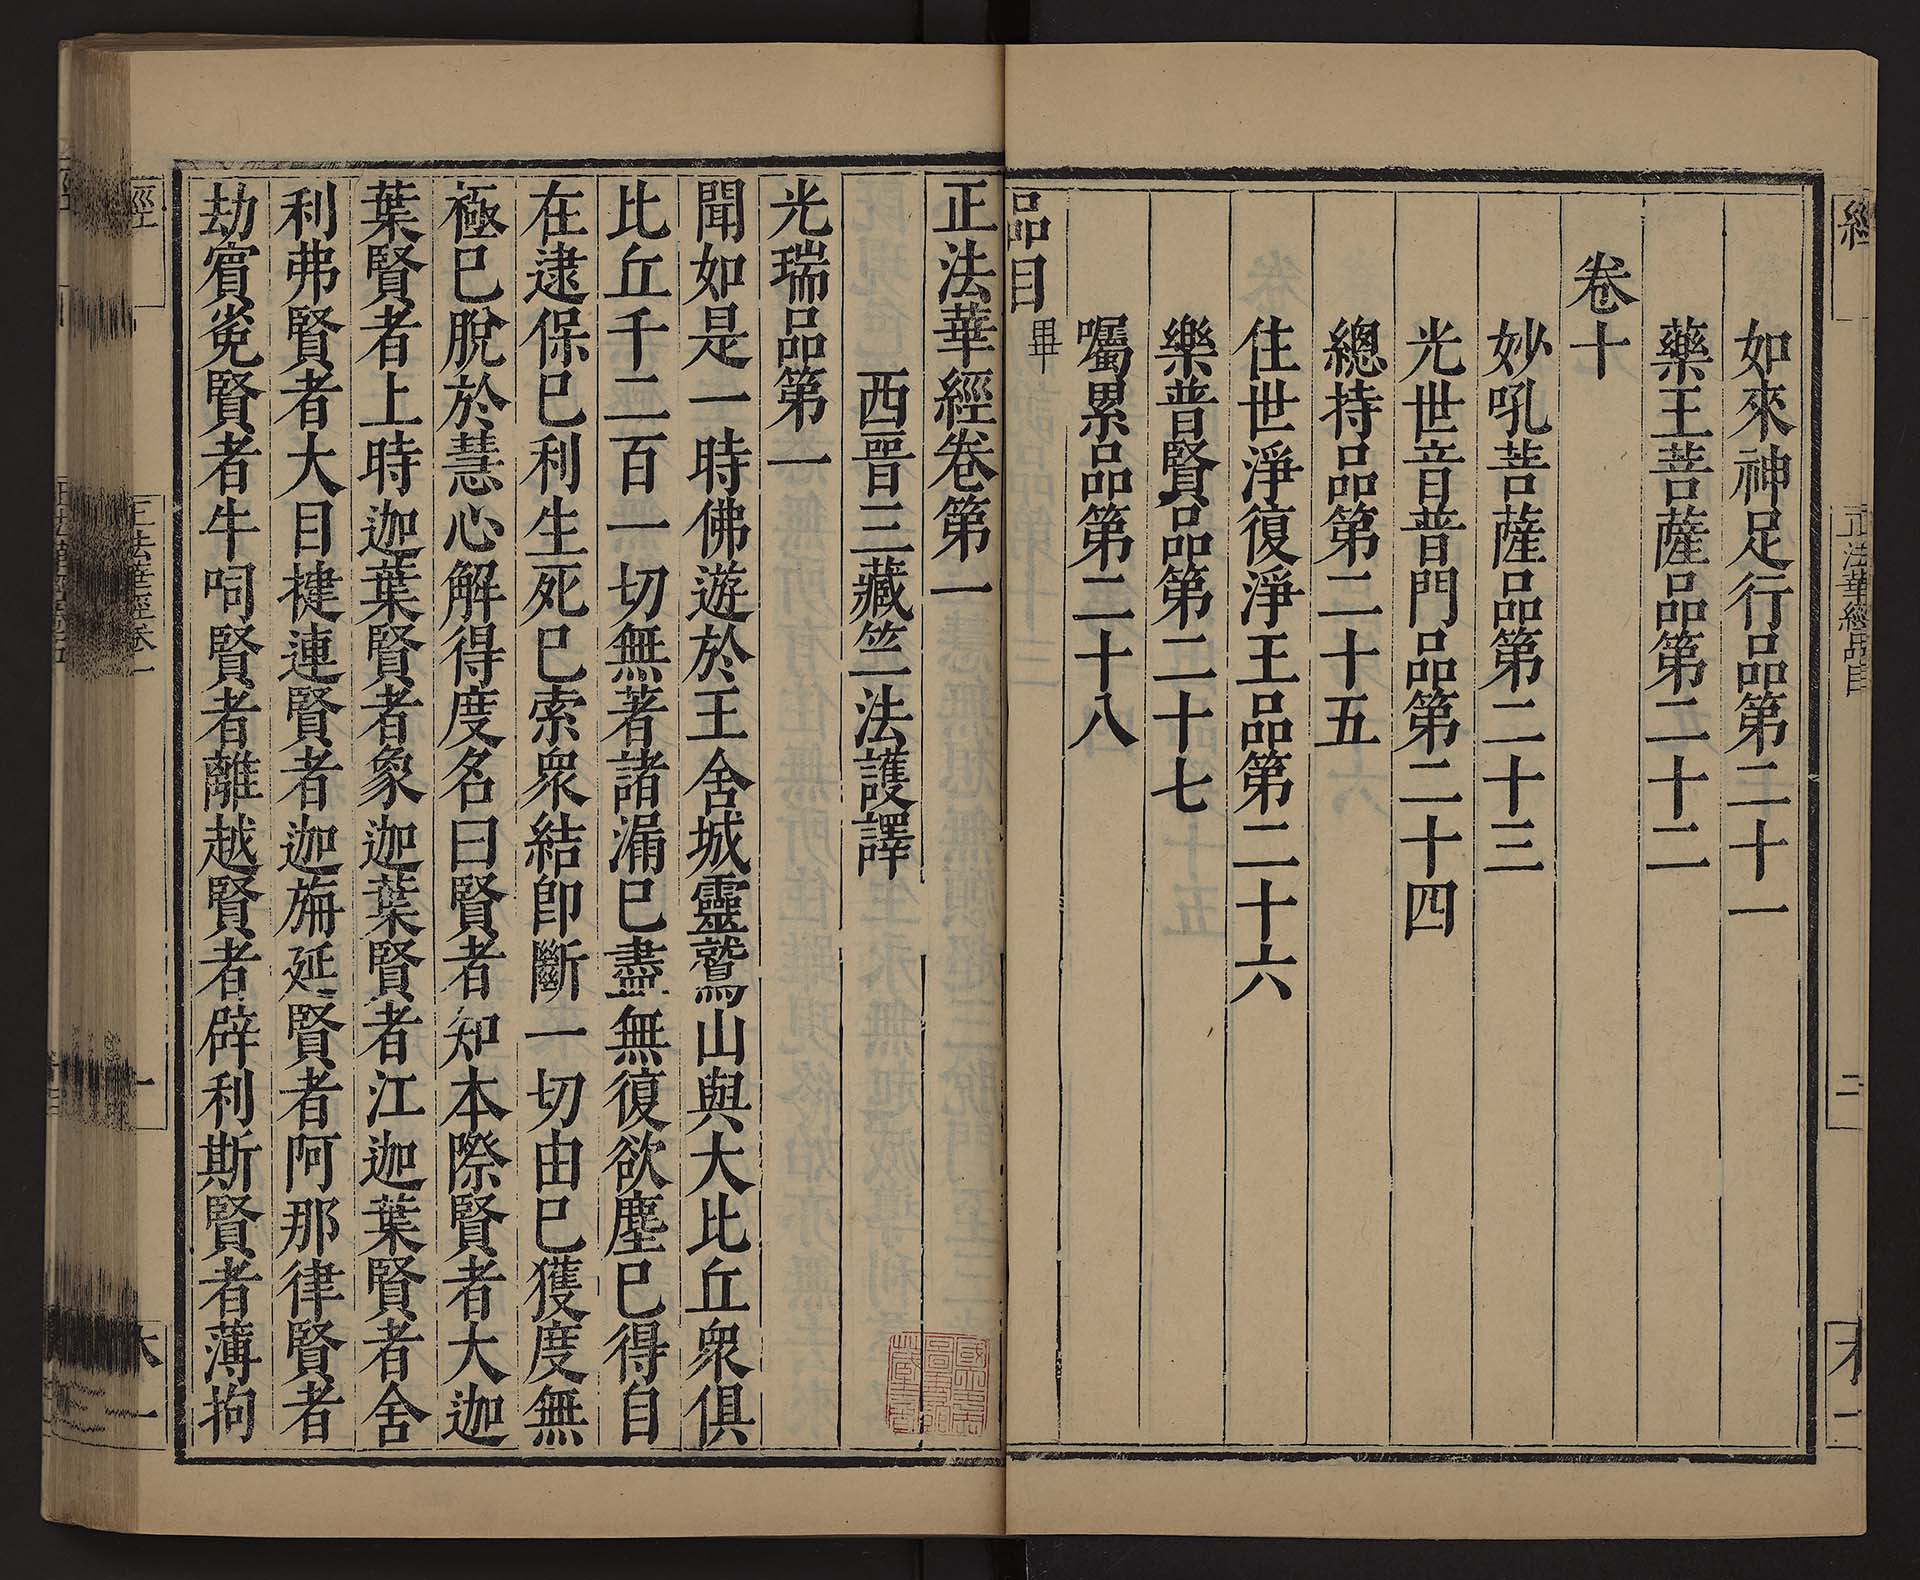 如來神足行品第二十一
藥王菩薩品第二十二
卷十
妙吼菩薩品第二十三
光世音普門品第二十四
總持品第二十五
住世淨復淨王品第二十六
樂普賢品第二十七
囑累品第二十八
品目畢
正法華經卷第一
西晉三藏竺法護譯
光瑞品第一
聞如是一時佛遊於王舍城靈鷲山與大比丘衆俱
比丘千二百一切無著諸漏已盡無復欲塵已得自
在逮保已利生死已索衆結即斷一切由已獲度無
極已脫於慧心解得度名曰賢者知本際賢者大迦
葉賢者上時迦葉賢者象迦葉賢者江迦葉賢者舍
利弗賢者大目揵連賢者迦旃延賢者阿那律賢者
劫賓㝹賢者牛呞賢者離越賢者辟利斯賢者薄拘
正法華經品目
二
正法華經卷一
一